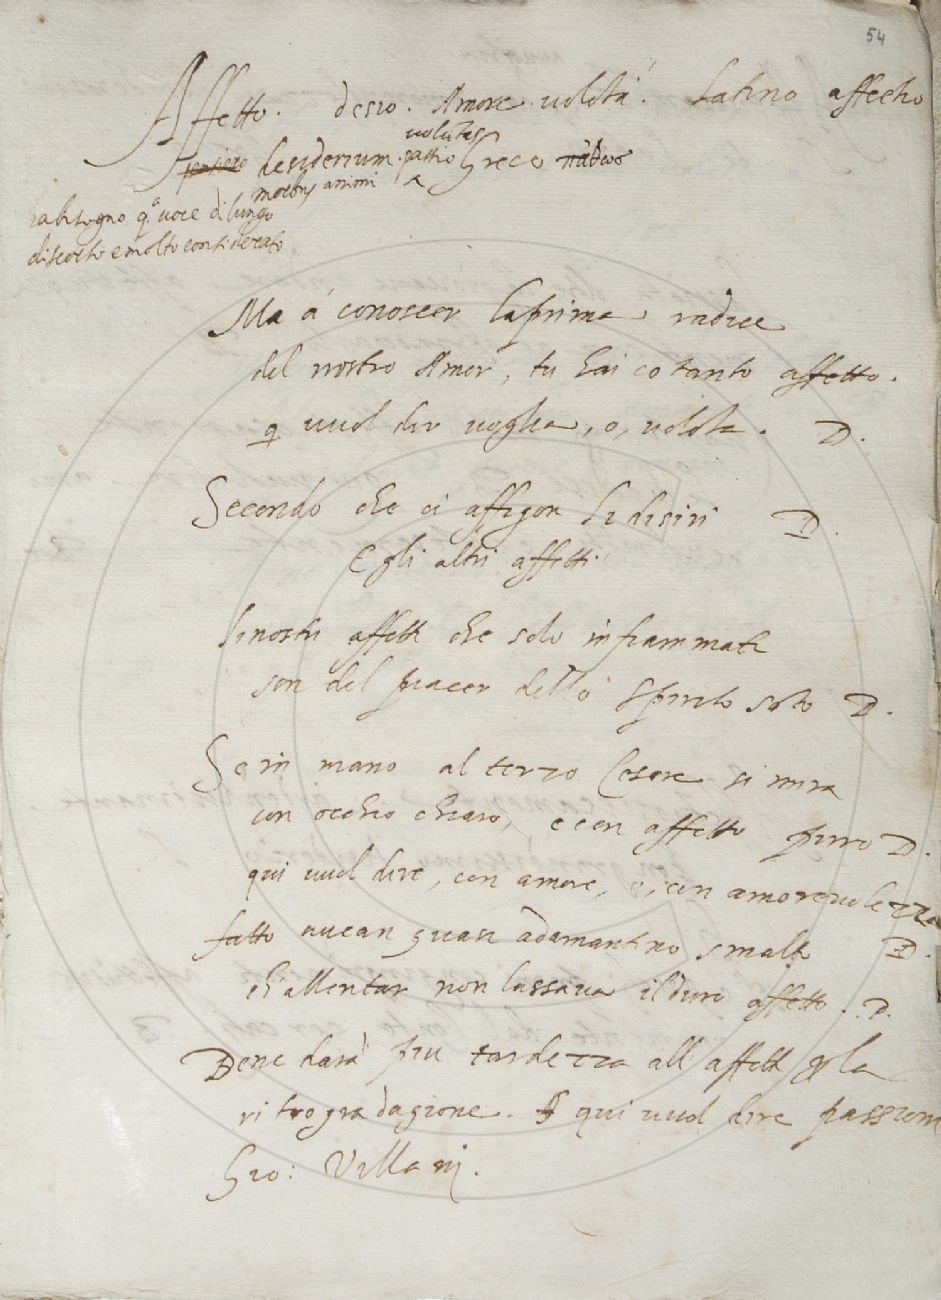 54
Affetto. desio. Amore. volõtà. Latino affectio
pensiero desiderium. passio Greco πάθος
volũtas
morbus animi
ha bisogno qᵃ voce di lungo
discorso e molto considerato
Ma à conoscer la prima radice
del nostro Amor, tu hai cotanto affetto.
q vuol dir voglia, o, volõtà. D.
Secondo che ci affigon li disiri D.
E gli altri affetti
Li nostri affetti che solo infiammati
son del piacer dello Spirito Sãto D.
Se in mano al terzo Cesare si mira
con occhio chiaro, e con affetto puro D.
qui vuol dire, con amore, o, con amorevolezza
fatto avean quasi adamantino smalto D.
ch'allentar non lassava il duro affetto. D.
Bene darà più tardezza alli affetti p la
ritrogradagione. qui vuol dire passioni
Gio: Villani.